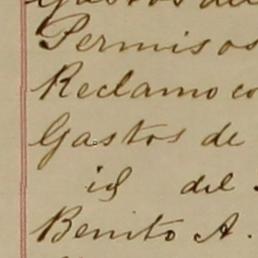 Gastos del
Permisos
Reclamo co
Gastos de
id del
Benito A.